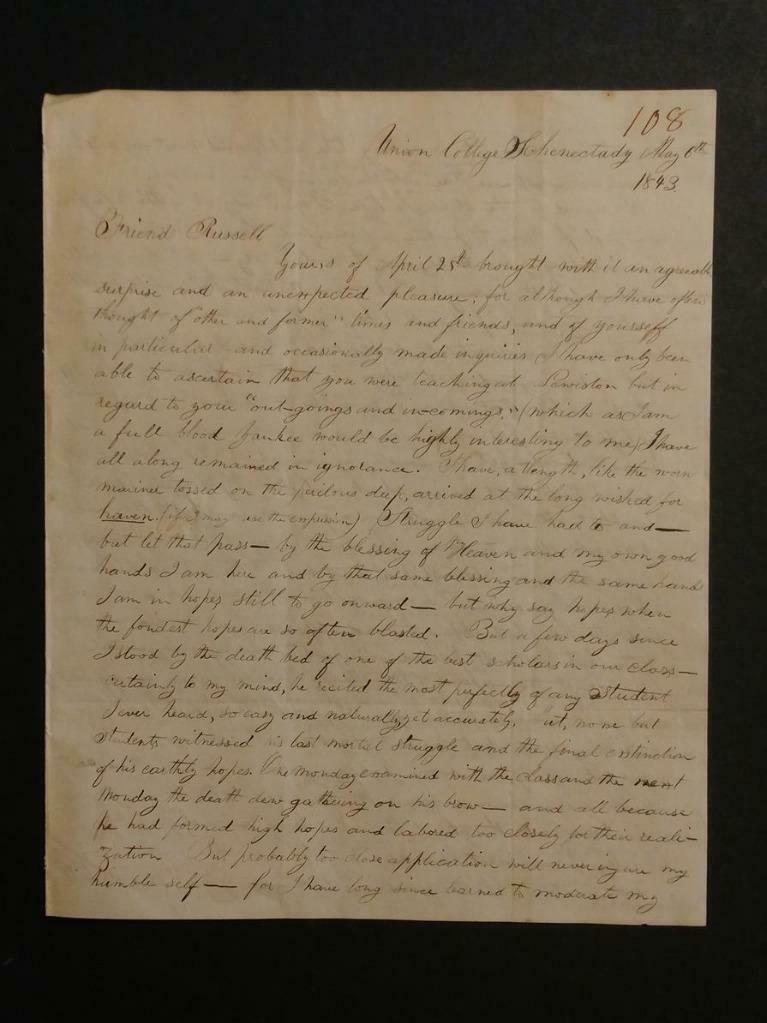 108
Union College Schenectady May 6th
1843.
Friend Russell
Yours of April 25th brought with it an agreeable
surprise and an unexpected pleasure, for although I have often
thought of "other and former" times and friends, and of yourself
in particular and occasionally made inquiries I have only been
able to ascertain that you were teaching at Lewiston but in
regard to your "out-goings and incomings," (which as I am
a full blood Yankee would be highly interesting to me) I have
all along remained in ignorance. I have, at length, like the worn
mariner tossed on the perilous deep, arrived at the long wished for
haven. (if I may use the expression) Struggle I have had to and—
but let that pass— by the blessing of Heaven and my own good
hands I am here and by that same blessing and the same hands
I am in hopes still to go onward— but why say hopes when
the fondest hopes are so often blasted. But a few days since
I stood by the death bed of one of the best scholars in our class—
certainly to my mind, he recited the most perfectly of any student
I ever heard, so easy and naturally, yet accurately. none but
students witnessed his last mortal struggle and the final extinction
of his earthly hopes. One monday examined with the class and the next
monday the death dew gathering on his brow— and all because
he had formed high hopes and labored too closely for their reali-
zation But probably too close application will never injure my
humble self— for I have long since learned to moderate my